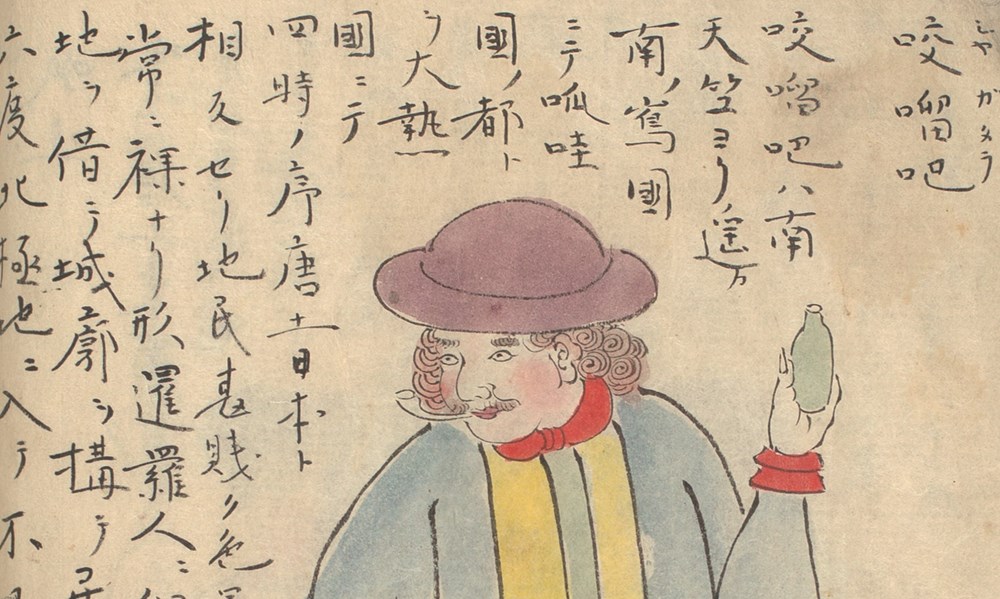 じや がタラ
咬𠺕吧
咬𠺕吧ハ南
天竺ヨリ遥カ
南ノ嶌國
ニテ呱哇
國ノ都ト
大熱
國ニテ
四時ノ序唐土日本ト
相反セリ地民甚賤ク色
常ニ裸ナリ形暹羅人ニ
地ヲ借テ城廓ヲ構テ居
六度北極地ニ入テ不